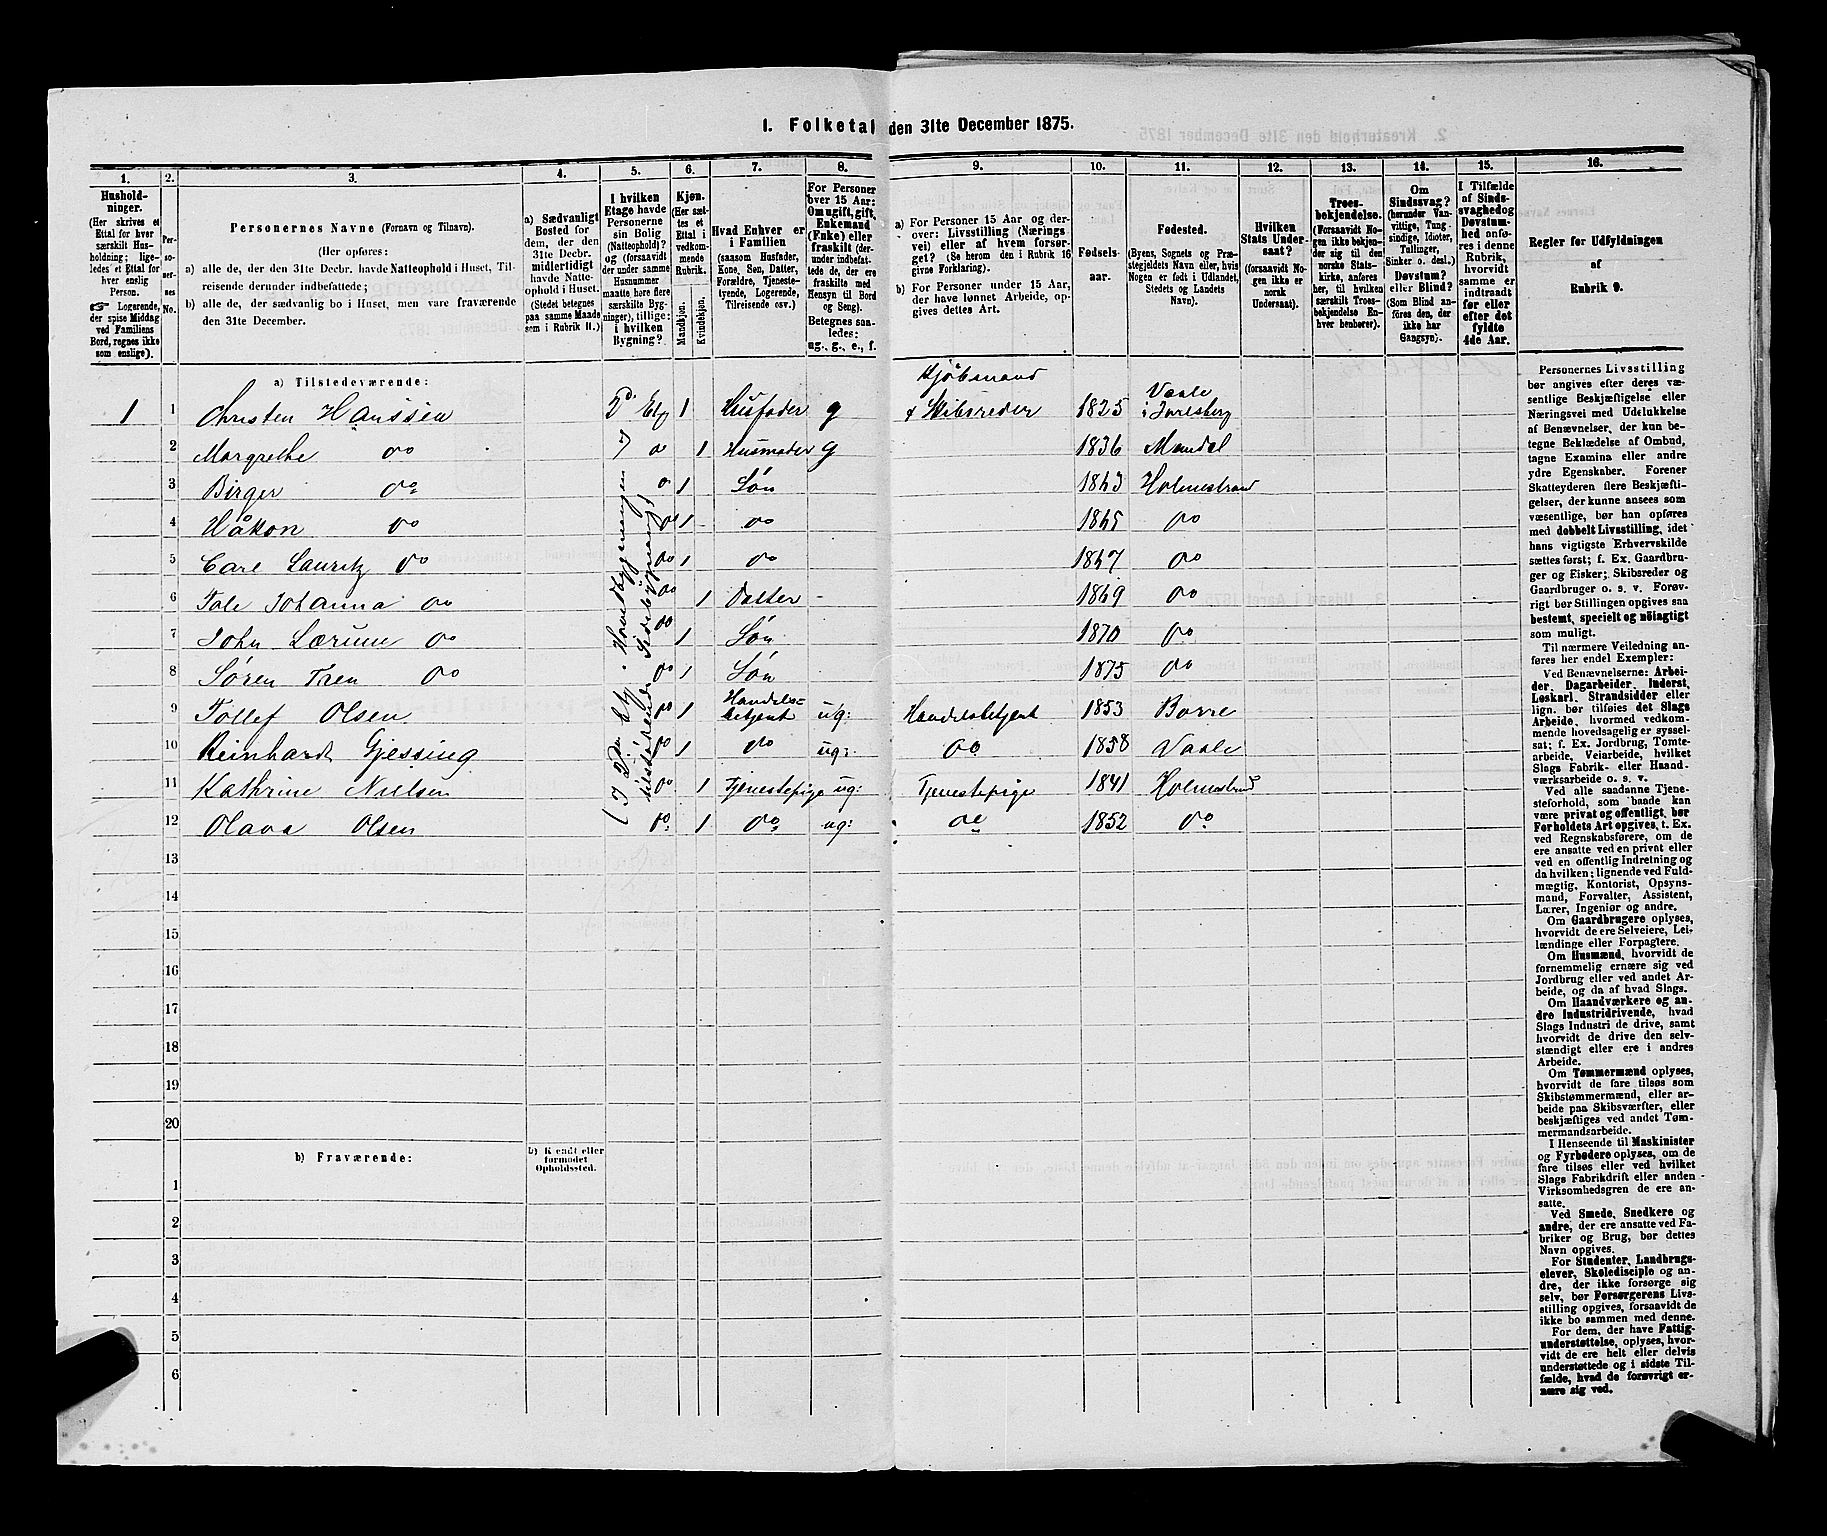 1. Folketal den 31te December 1875.
1.
Hushold-
ninger.
(Her skrives et
Ettal for hver
særskilt Hus-
holdning; lige-
ledes et Ettal for
hver enslig
Person.
☞ Logerende,
der spise Middag
ved Familiens
Bord, regnes ikke
som enslige).
2.
Per-
so-
ner-
nes
No.
3.
Personernes Navne (Fornavn og Tilnavn).
(Her opføres:
a) alle de, der den 31te Decbr. havde Natteophold i Huset, Til-
reisende derunder indbefattede;
b) alle de, der sædvanlig bo i Huset, men vare fraværende
den 31te December.
4.
a) Sædvanligt
Bosted for
dem, der den
31te Decbr.
midlertidigt
havde Natte-
ophold i Huset.
(Stedet betegnes
paa samme Maade
som i Rubrik 11.)
5.
I hvilken
Etage havde
Personerne
sin Bolig
(Natteophold)?
og (forsaavidt
der under samme
Husnummer
maatte høre flere
særskilte Byg-
ninger), tillige:
i hvilken
Bygning?
6.
Kjøn.
(Her sæt-
tes et
Ettal i
vedkom-
mende
Rubrik.
Mandkjøn.
Kvindekjøn.
7.
Hvad Enhver er
i Familien
(saasom Husfader,
Kone, Søn, Datter,
Forældre, Tjeneste-
tyende, Logerende,
Tilreisende osv.)
8.
For Personer
over 15 Aar:
Om ugift, gift,
Enkemand
(Enke) eller
fraskilt (der-
under indbefat-
tede de, der ere
fraskilte med
Hensyn til Bord
og Seng).
Betegnes saa-
ledes:
ug., g., e., f.
9.
a) For Personer 15 Aar og der-
over: Livsstilling (Nærings
vei) eller af hvem forsør-
get? (Se herom den i Rubrik 16
givne Forklaring).
b) For Personer under 15 Aar,
der have lønnet Arbeide, op-
gives dettes Art.
10.
Fødsels-
aar.
11.
Fødested.
(Byens, Sognets og Præ-
stegjeldets Navn eller, hvis
Nogen er født i Udlandet,
Stedets og Landets
Navn).
12.
Hvilken
Stats Under-
saat?
(forsaavidt No-
gen ikke er
norsk
Undersaat).
13.
Troes-
bekjendelse.
(Forsaavidt No-
gen ikke bekjen-
der sig til den
norske Stats-
kirke, anføres
her, til hvilken
særskilt Troes-
bekjendelse En-
hver henhører).
14.
Om
Sindssvag?
(herunder Van-
vittige, Tung-
sindige, Idioter,
Tullinger,
Sinker o. desl.)
Døvstum?
eller Blind?
(Som Blind an-
føres den, der
ikke har
Gangsyn).
15.
I Tilfælde
af Sinds-
svaghed og
Døvstum-
hed onfø-
res i denne
Rubrik,
hvorvidt
samme er
indtraadt
før eller
efter det
fyldte
4de Aar.
16.
Regler for Udfyldningen
af
Rubrik 9.
a) Tilstedeværende:
1 1 Christen Hanssen Do Etg 1 Husfader g Kjøbmand & Skibsreder 1825 Vaale i Jarlsberg
2 Margrethe Do 1 Husmoder g 1836 Mandal
3 Birger Do 1 Søn 1863 Holmestrand
4 Håkon Do 1 Do 1865 Do
5 Carl Lauritz Do 1 Do 1867 Do
6 Tale Johanna Do 1 Datter 1869 Do
7 John Lærum Do 1 Søn 1870 Do
8 Søren Tren Do 1 Søn 1875 Do
9 Tollef Olsen Do 1 Handels-betjent ug: Handelsbetjent 1853 Borre
10 Reinhardt Gjessing Do 1 Do ug: Do 1858 Vaale
11 Kathrine Nielsen Do 1 Tjenestepige ug: Tjenestepige 1841 Holmestrand
12 Olava Olsen Do 1 Do ug: Do 1852 Do
13
14
15
16
17
18
19
20
b) Fraværende:
b) Kendt eller
formodet
Opholdssted.
1
2
3
4
5
6
Personernes Livsstilling
bør angives efter deres væ-
sentlige Beskjæftigelse eller
Næringsvei med Udelukkelse
af Benævnelser, der kun be-
tegne Beklædelse af Ombud,
tagne Examina eller andre
ydre Egenskaber. Forener
Skatteyderen flere Beskjæfti-
gelser, der kunne ansees som
væsentlige, bør han opføres
med dobbelt Livsstilling, idet
hans vigtigste Erhvervskilde
sættes først; f. Ex. Gaardbru-
ger og Fisker; Skibsreder og
Gaardbruger o. s. v. Forøv-
rigt bør Stillingen opgives saa
bestemt, specielt og nöiagtigt
som muligt.
Til nærmere Veiledning an-
føres her endel Exempler:
Ved Benævnelserne: Arbei-
der, Dagarbeider, Inderst,
Løskarl, Strandsidder eller
lign. bør tilføies det Slags
Arbeide, hvormed vedkom-
mende hovedsagelig er syssel-
sat; f. Ex. Jordbrug, Tomte-
arbeide, Veiarbeide, hvilket
Slags Fabrik- eller Haand-
værksarbeide o. s. v.
Ved alle saadanne Tjene-
steforhold, som baade kan
være privat og offentligt, bør
Forholdets Art opgives, t. Ex.
ved Regnskabsførere, om de
ere ansatte ved en privat eller
ved en offentlig Indretning og
da hvilken; lignende ved Fuld-
mægtig, Kontorist, Opsyns-
mand, Forvalter, Assistent,
Lærer, Ingeniør og andre.
Om Gaardbrugere oplyses,
hvorvidt de ere Selveiere, Lei-
lændinge eller Forpagtere.
Om Husmænd, hvorvidt de
fornemmelig ernære sig ved
Jordbrug eller ved andet Ar-
beide, og da af hvad Slags.
Om Haandværkere og an-
dre Industridrivende, hvad
Slags Industri de drive, samt
hvorvidt de drive den selv-
stændigt eller ere i andres
Arbeide.
Om Tømmermænd oplyses,
hvorvidt de fare tilsøs som
Skibstømmermænd, eller ar-
beide paa Skibsværfter, eller
beskjæftiges ved andet Tøm-
mermandsarbeide.
I Henseende til Maskinister
og Fyrbødere oplyses, om de
fare tilsøs eller ved hvilket
Slags Fabrikdrift eller anden
Virksomhedsgren de ere an-
satte.
Ved Smede, Snedkere og
andre, der ere ansatte ved Fa-
briker og Brug, bør dettes
Navn opgives.
For Studenter, Landbrugs-
elever, Skoledisciple og an-
dre, der ikke forsørge sig
selv, bør Forsørgerens Livs-
stilling opgives, forsaavidt de
ikke bo sammen med denne.
For dem, der have Fattig-
understøttelse, oplyses, hvor-
vidt de ere helt eller delvis
understøttede og i sidste Til-
fælde, hvad de forøvrigt er-
nære sig ved.